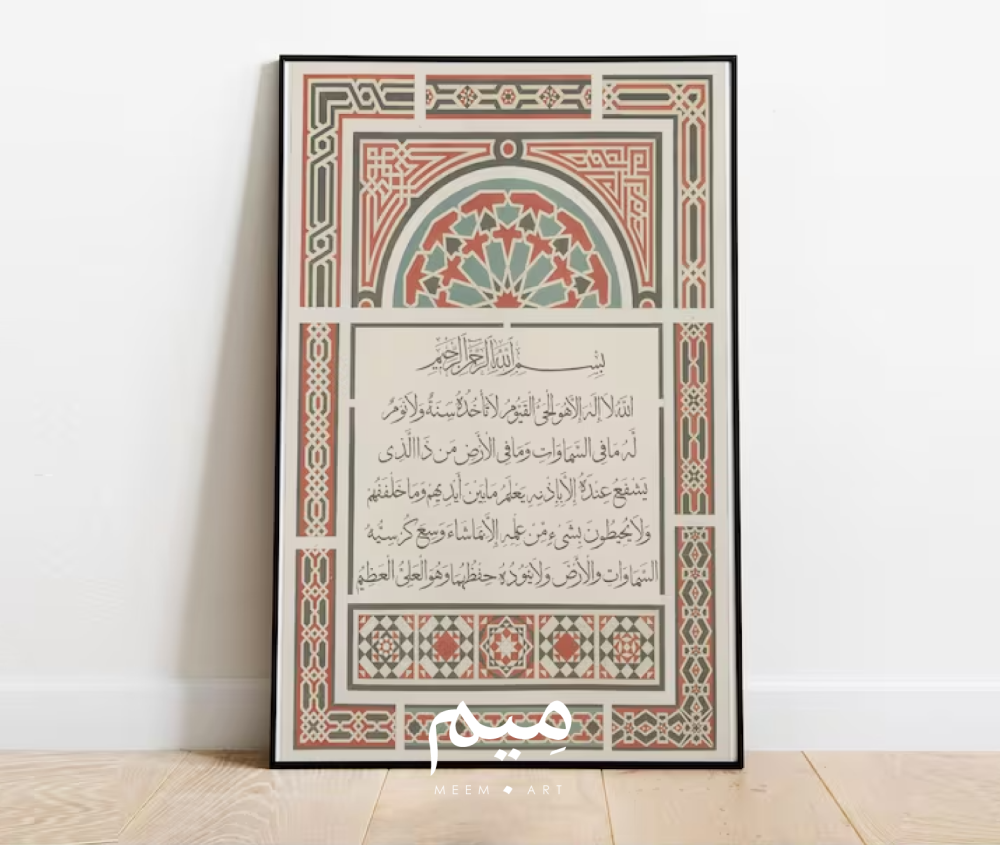 بِسْمِ اللَّهِ الرَّحْمَٰنِ الرَّحِيمِ
اللَّهُ لَا إِلَٰهَ إِلَّا هُوَ الْحَيُّ الْقَيُّومُ لَا تَأْخُذُهُ سِنَةٌ وَلَا نَوْمٌ
لَّهُ مَا فِي السَّمَاوَاتِ وَمَا فِي الْأَرْضِ مَن ذَا الَّذِي
يَشْفَعُ عِندَهُ إِلَّا بِإِذْنِهِ يَعْلَمُ مَا بَيْنَ أَيْدِيهِمْ وَمَا خَلْفَهُمْ
وَلَا يُحِيطُونَ بِشَيْءٍ مِّنْ عِلْمِهِ إِلَّا بِمَا شَاءَ وَسِعَ كُرْسِيُّهُ
السَّمَاوَاتِ وَالْأَرْضَ وَلَا يَئُودُهُ حِفْظُهُمَا وَهُوَ الْعَلِيُّ الْعَظِيمُ
مِيم
MEEM ART